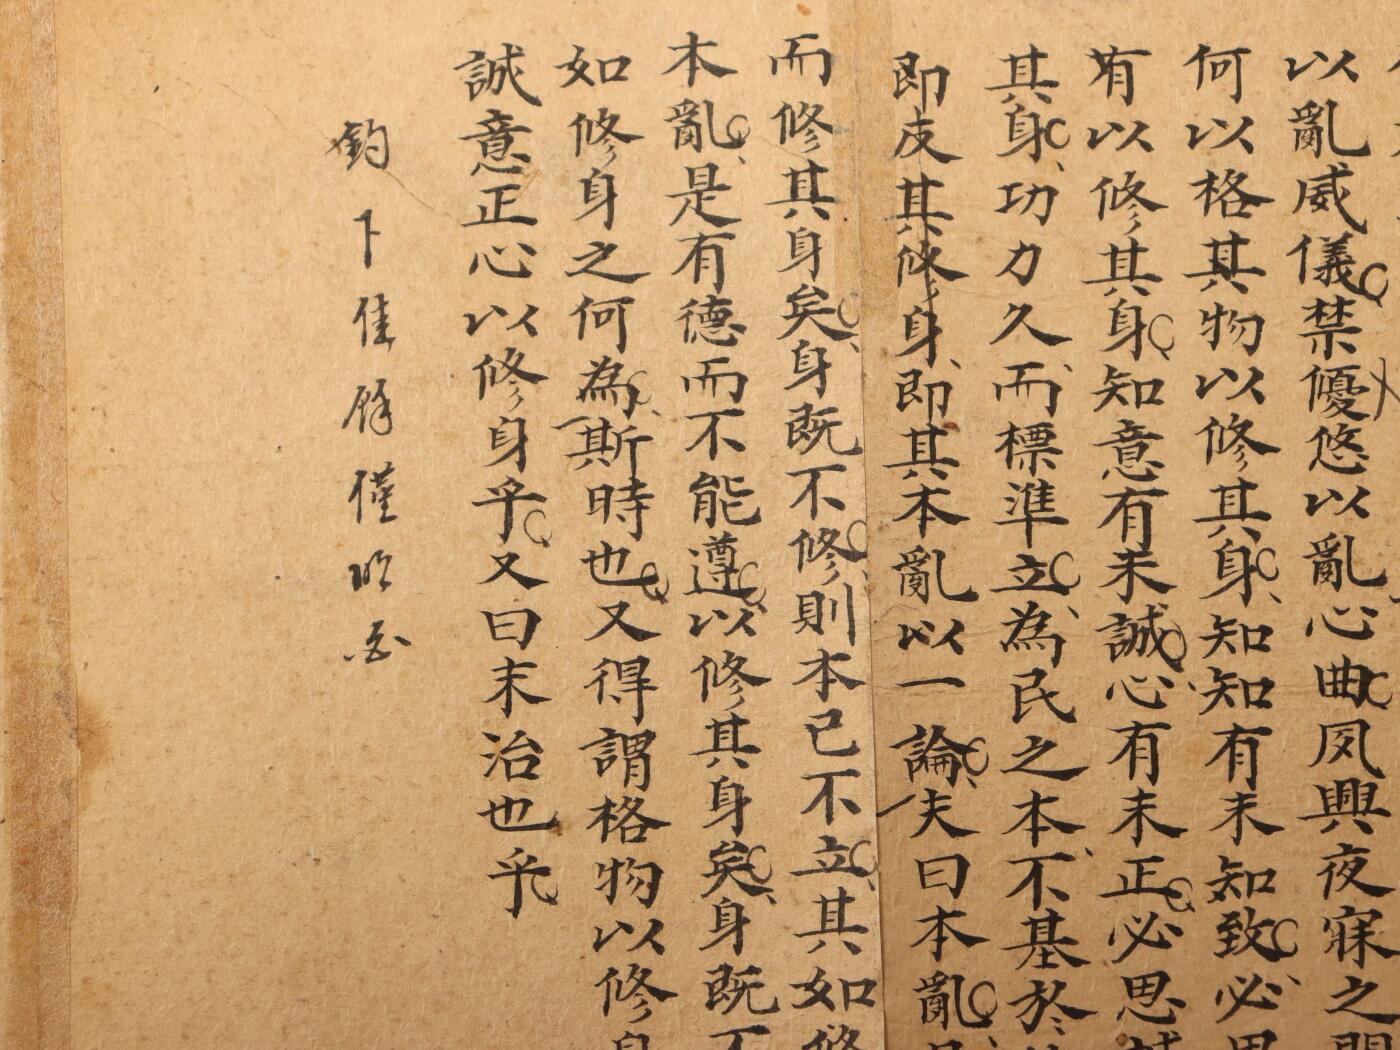 以亂威儀禁優悠以亂心曲夙興夜寐之間
何以格其物以修其身知知有未知致必思
有以修其身知意有未誠心有未正必思誠
其身功力久而標準立為民之本不基於
即反其修身即其本亂以一論夫曰本亂
而修其身矣身既不修則本已不立其如修
本亂是有德而不能遵以修其身矣身既不
如修身之何為斯時也又得謂格物以修身
誠意正心以修身乎又曰末治也乎
鈞下隹